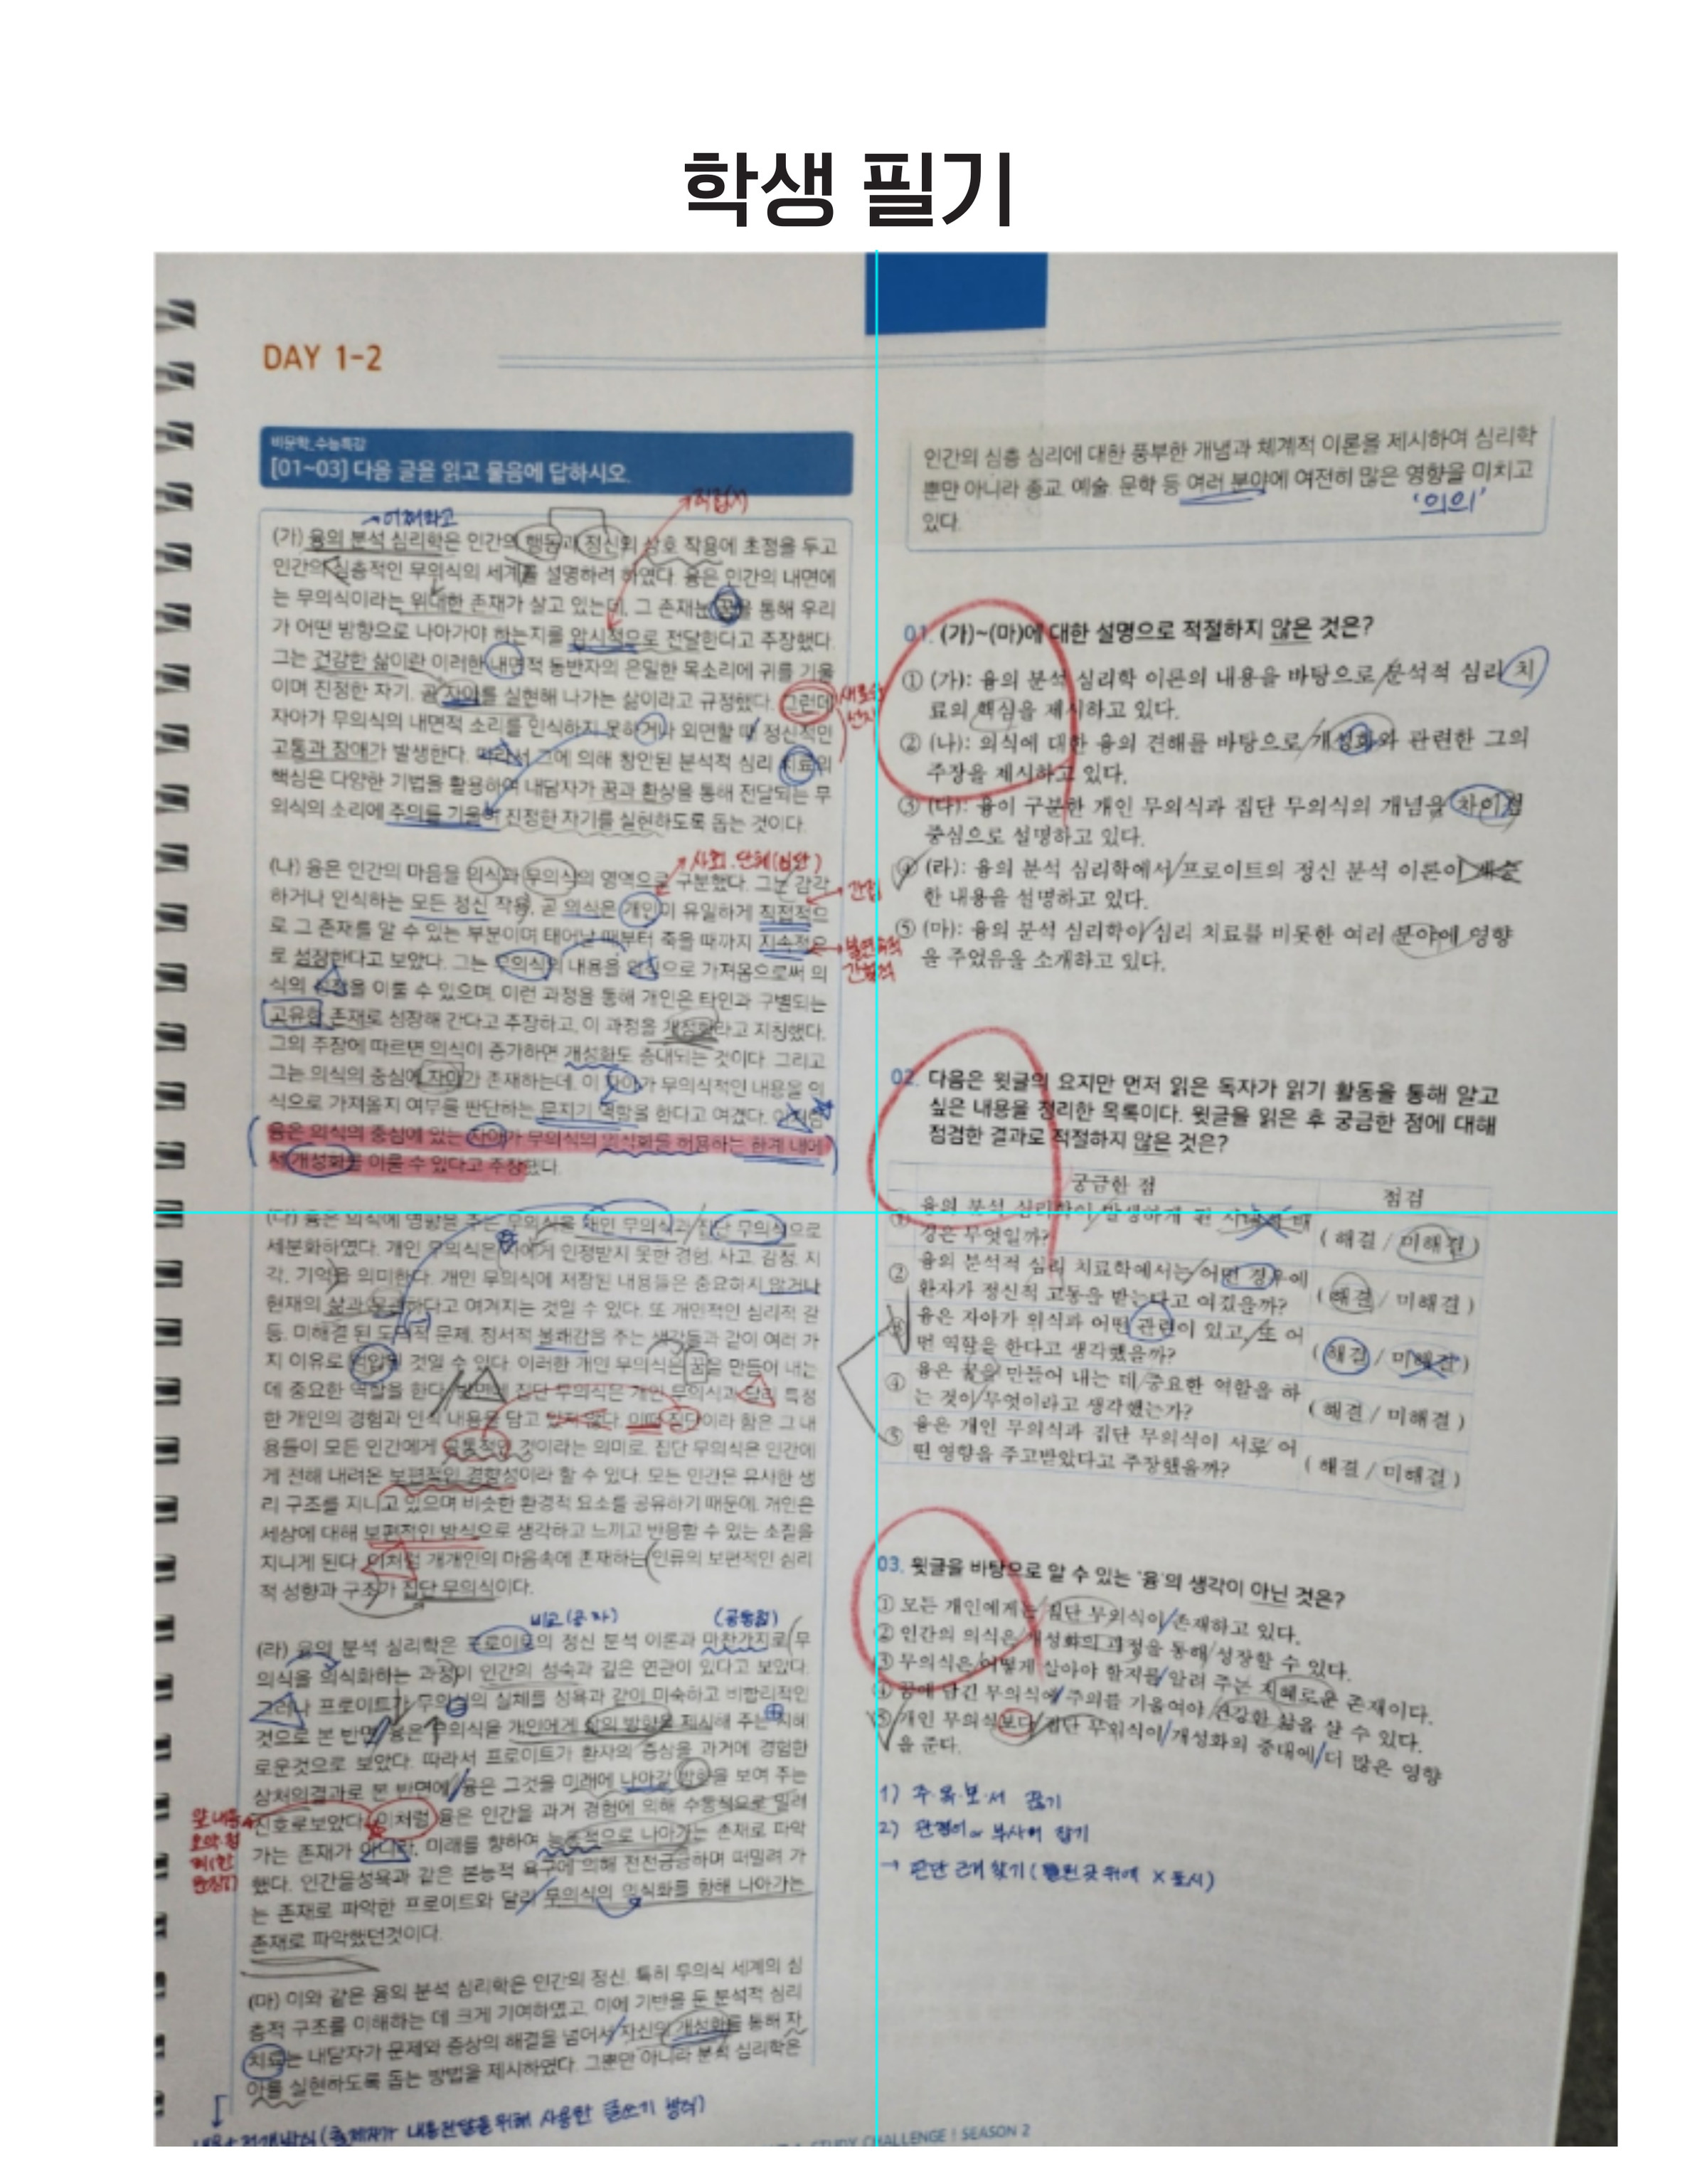 학생 필기
DAY 1-2
비문학_수능특강
[01~03] 다음 글을 읽고 물음에 답하시오.
직접(x)
어쩌라고
(가) 융의 분석 심리학은 인간의 행동과 정신의 상호 작용에 초점을 두고
인간의 심층적인 무의식의 세계를 설명하려 하였다. 융은 인간의 내면에
는 무의식이라는 위대한 존재가 살고 있는데, 그 존재는 꿈을 통해 우리
가 어떤 방향으로 나아가야 하는지를 암시적으로 전달한다고 주장했다.
그는 건강한 삶이란 이러한 내면적 동반자의 은밀한 목소리에 귀를 기울
이며 진정한 자기, 곧 자아를 실현해 나가는 삶이라고 규정했다. 그런데
자아가 무의식의 내면적 소리를 인식하지 못하거나 외면할 때 정신적인
고통과 장애가 발생한다. 따라서 그에 의해 창안된 분석적 심리 치료의
핵심은 다양한 기법을 활용하여 내담자가 꿈과 환상을 통해 전달되는 무
의식의 소리에 주의를 기울여 진정한 자기를 실현하도록 돕는 것이다.
사회·단체(집단)
(나) 융은 인간의 마음을 의식과 무의식의 영역으로 구분했다. 그는 감각
하거나 인식하는 모든 정신 작용, 곧 의식은 개인이 유일하게 직접적으
로 그 존재를 알 수 있는 부분이며 태어날 때부터 죽을 때까지 지속적으
로 성장한다고 보았다. 그는 무의식의 내용을 의식으로 가져옴으로써 의
식의 성장을 이룰 수 있으며, 이런 과정을 통해 개인은 타인과 구별되는
고유한 존재로 성장해 간다고 주장하고, 이 과정을 개성화라고 지칭했다.
그의 주장에 따르면 의식이 증가하면 개성화도 증대되는 것이다. 그리고
그는 의식의 중심에 자아가 존재하는데, 이 자아가 무의식적인 내용을 의
식으로 가져올지 여부를 판단하는 문지기 역할을 한다고 여겼다. 이처럼
융은 의식의 중심에 있는 자아가 무의식의 의식화를 허용하는 한계 내에
서 개성화를 이룰 수 있다고 주장했다.
간접
(다) 융은 의식에 영향을 주는 무의식을 개인 무의식과 집단 무의식으로
세분화하였다. 개인 무의식은 자아에게 인정받지 못한 경험, 사고, 감정, 지
각, 기억을 의미한다. 개인 무의식에 저장된 내용들은 중요하지 않거나
현재의 삶과 무관하다고 여겨지는 것일 수 있다. 또 개인적인 심리적 갈
등, 미해결 된 도덕적 문제, 정서적 불쾌감을 주는 생각들과 같이 여러 가
지 이유로 억압된 것일 수 있다. 이러한 개인 무의식은 꿈을 만들어 내는
데 중요한 역할을 한다. 반면에 집단 무의식은 개인 무의식과 달리 특정
한 개인의 경험과 인식 내용을 담고 있지 않다. 이때 집단이라 함은 그 내
용들이 모든 인간에게 공통적인 것이라는 의미로, 집단 무의식은 인간에
게 전해 내려온 보편적인 경향성이라 할 수 있다. 모든 인간은 유사한 생
리 구조를 지니고 있으며 비슷한 환경적 요소를 공유하기 때문에, 개인은
세상에 대해 보편적인 방식으로 생각하고 느끼고 반응할 수 있는 소질을
지니게 된다. 이처럼 개개인의 마음속에 존재하는 인류의 보편적인 심리
적 성향과 구조가 집단 무의식이다.
(공통점)
(라) 융의 분석 심리학은 프로이트의 정신 분석 이론과 마찬가지로 무
의식을 의식화하는 과정이 인간의 성숙과 깊은 연관이 있다고 보았다.
그러나 프로이트가 무의식의 실체를 성욕과 같이 미숙하고 비합리적인
것으로 본 반면, 융은 무의식을 개인에게 삶의 방향을 제시해 주는 지혜
로운것으로 보았다. 따라서 프로이트가 환자의 증상을 과거에 경험한
상처의결과로 본 반면에, 융은 그것을 미래에 나아갈 방향을 보여 주는
신호로보았다. 이처럼 융은 인간을 과거 경험에 의해 수동적으로 밀려
가는 존재가 아니라, 미래를 향하여 능동적으로 나아가는 존재로 파악
했다. 인간을성욕과 같은 본능적 욕구에 의해 전전긍긍하며 떠밀려 가
는 존재로 파악한 프로이트와 달리 무의식의 의식화를 향해 나아가는
존재로 파악했던것이다.
(마) 이와 같은 융의 분석 심리학은 인간의 정신, 특히 무의식 세계의 심
층적 구조를 이해하는 데 크게 기여하였고, 이에 기반을 둔 분석적 심리
치료는 내담자가 문제와 증상의 해결을 넘어서 자신의 개성화를 통해 자
아를 실현하도록 돕는 방법을 제시하였다. 그뿐만 아니라 분석 심리학은
내용전달을 위해 사용한 글쓰기 방식)
인간의 심층 심리에 대한 풍부한 개념과 체계적 이론을 제시하여 심리학
뿐만 아니라 종교, 예술, 문학 등 여러 분야에 여전히 많은 영향을 미치고
있다.
'의의'
01. (가)~(마)에 대한 설명으로 적절하지 않은 것은?
① (가): 융의 분석 심리학 이론의 내용을 바탕으로 분석적 심리 치
료의 핵심을 제시하고 있다.
② (나): 의식에 대한 융의 견해를 바탕으로 개성화와 관련한 그의
주장을 제시하고 있다.
③ (다): 융이 구분한 개인 무의식과 집단 무의식의 개념을 차이점
중심으로 설명하고 있다.
④ (라): 융의 분석 심리학에서 프로이트의 정신 분석 이론이 계승
한 내용을 설명하고 있다.
⑤ (마): 융의 분석 심리학이 심리 치료를 비롯한 여러 분야에 영향
을 주었음을 소개하고 있다.
02. 다음은 윗글의 요지만 먼저 읽은 독자가 읽기 활동을 통해 알고
싶은 내용을 정리한 목록이다. 윗글을 읽은 후 궁금한 점에 대해
점검한 결과로 적절하지 않은 것은?
궁금한 점 점검
① 융의 분석 심리학이 발생하게 된 시대적 배
경은 무엇일까? ( 해결 / 미해결 )
② 융의 분석적 심리 치료학에서는 어떤 경우에
환자가 정신적 고통을 받는다고 여겼을까? ( 해결 / 미해결 )
③ 융은 자아가 의식과 어떤 관련이 있고, 또 어
떤 역할을 한다고 생각했을까? ( 해결 / 미해결 )
④ 융은 꿈을 만들어 내는 데 중요한 역할을 하
는 것이 무엇이라고 생각했는가? ( 해결 / 미해결 )
⑤ 융은 개인 무의식과 집단 무의식이 서로 어
떤 영향을 주고받았다고 주장했을까? ( 해결 / 미해결 )
03. 윗글을 바탕으로 알 수 있는 '융'의 생각이 아닌 것은?
① 모든 개인에게는 집단 무의식이 존재하고 있다.
② 인간의 의식은 개성화의 과정을 통해 성장할 수 있다.
③ 무의식은 어떻게 살아야 할지를 알려 주는 지혜로운 존재이다.
④ 꿈에 담긴 무의식에 주의를 기울여야 건강한 삶을 살 수 있다.
⑤ 개인 무의식보다 집단 무의식이 개성화의 증대에 더 많은 영향
을 준다.
1) 주·목·보·서 끊기
2) 관형어 or 부사어 잡기
→ 판단 근거 찾기 (틀린 곳 위에 X 표시)
STUDY CHALLENGE | SEASON 2